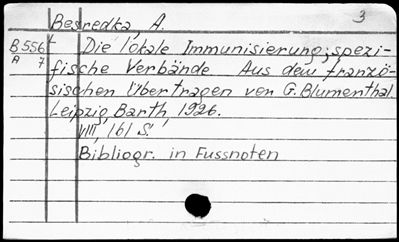 3
Besredka, A.
B 556 Die lokale Immunisierung; spezi-
A 7 fische Verbände Aus dem franzö-
sischen Übertragen von G. Blumenthal.
Leipzig, Barth, 1926.
VIII, 161 S.
Bibliogr. in Fussnoten